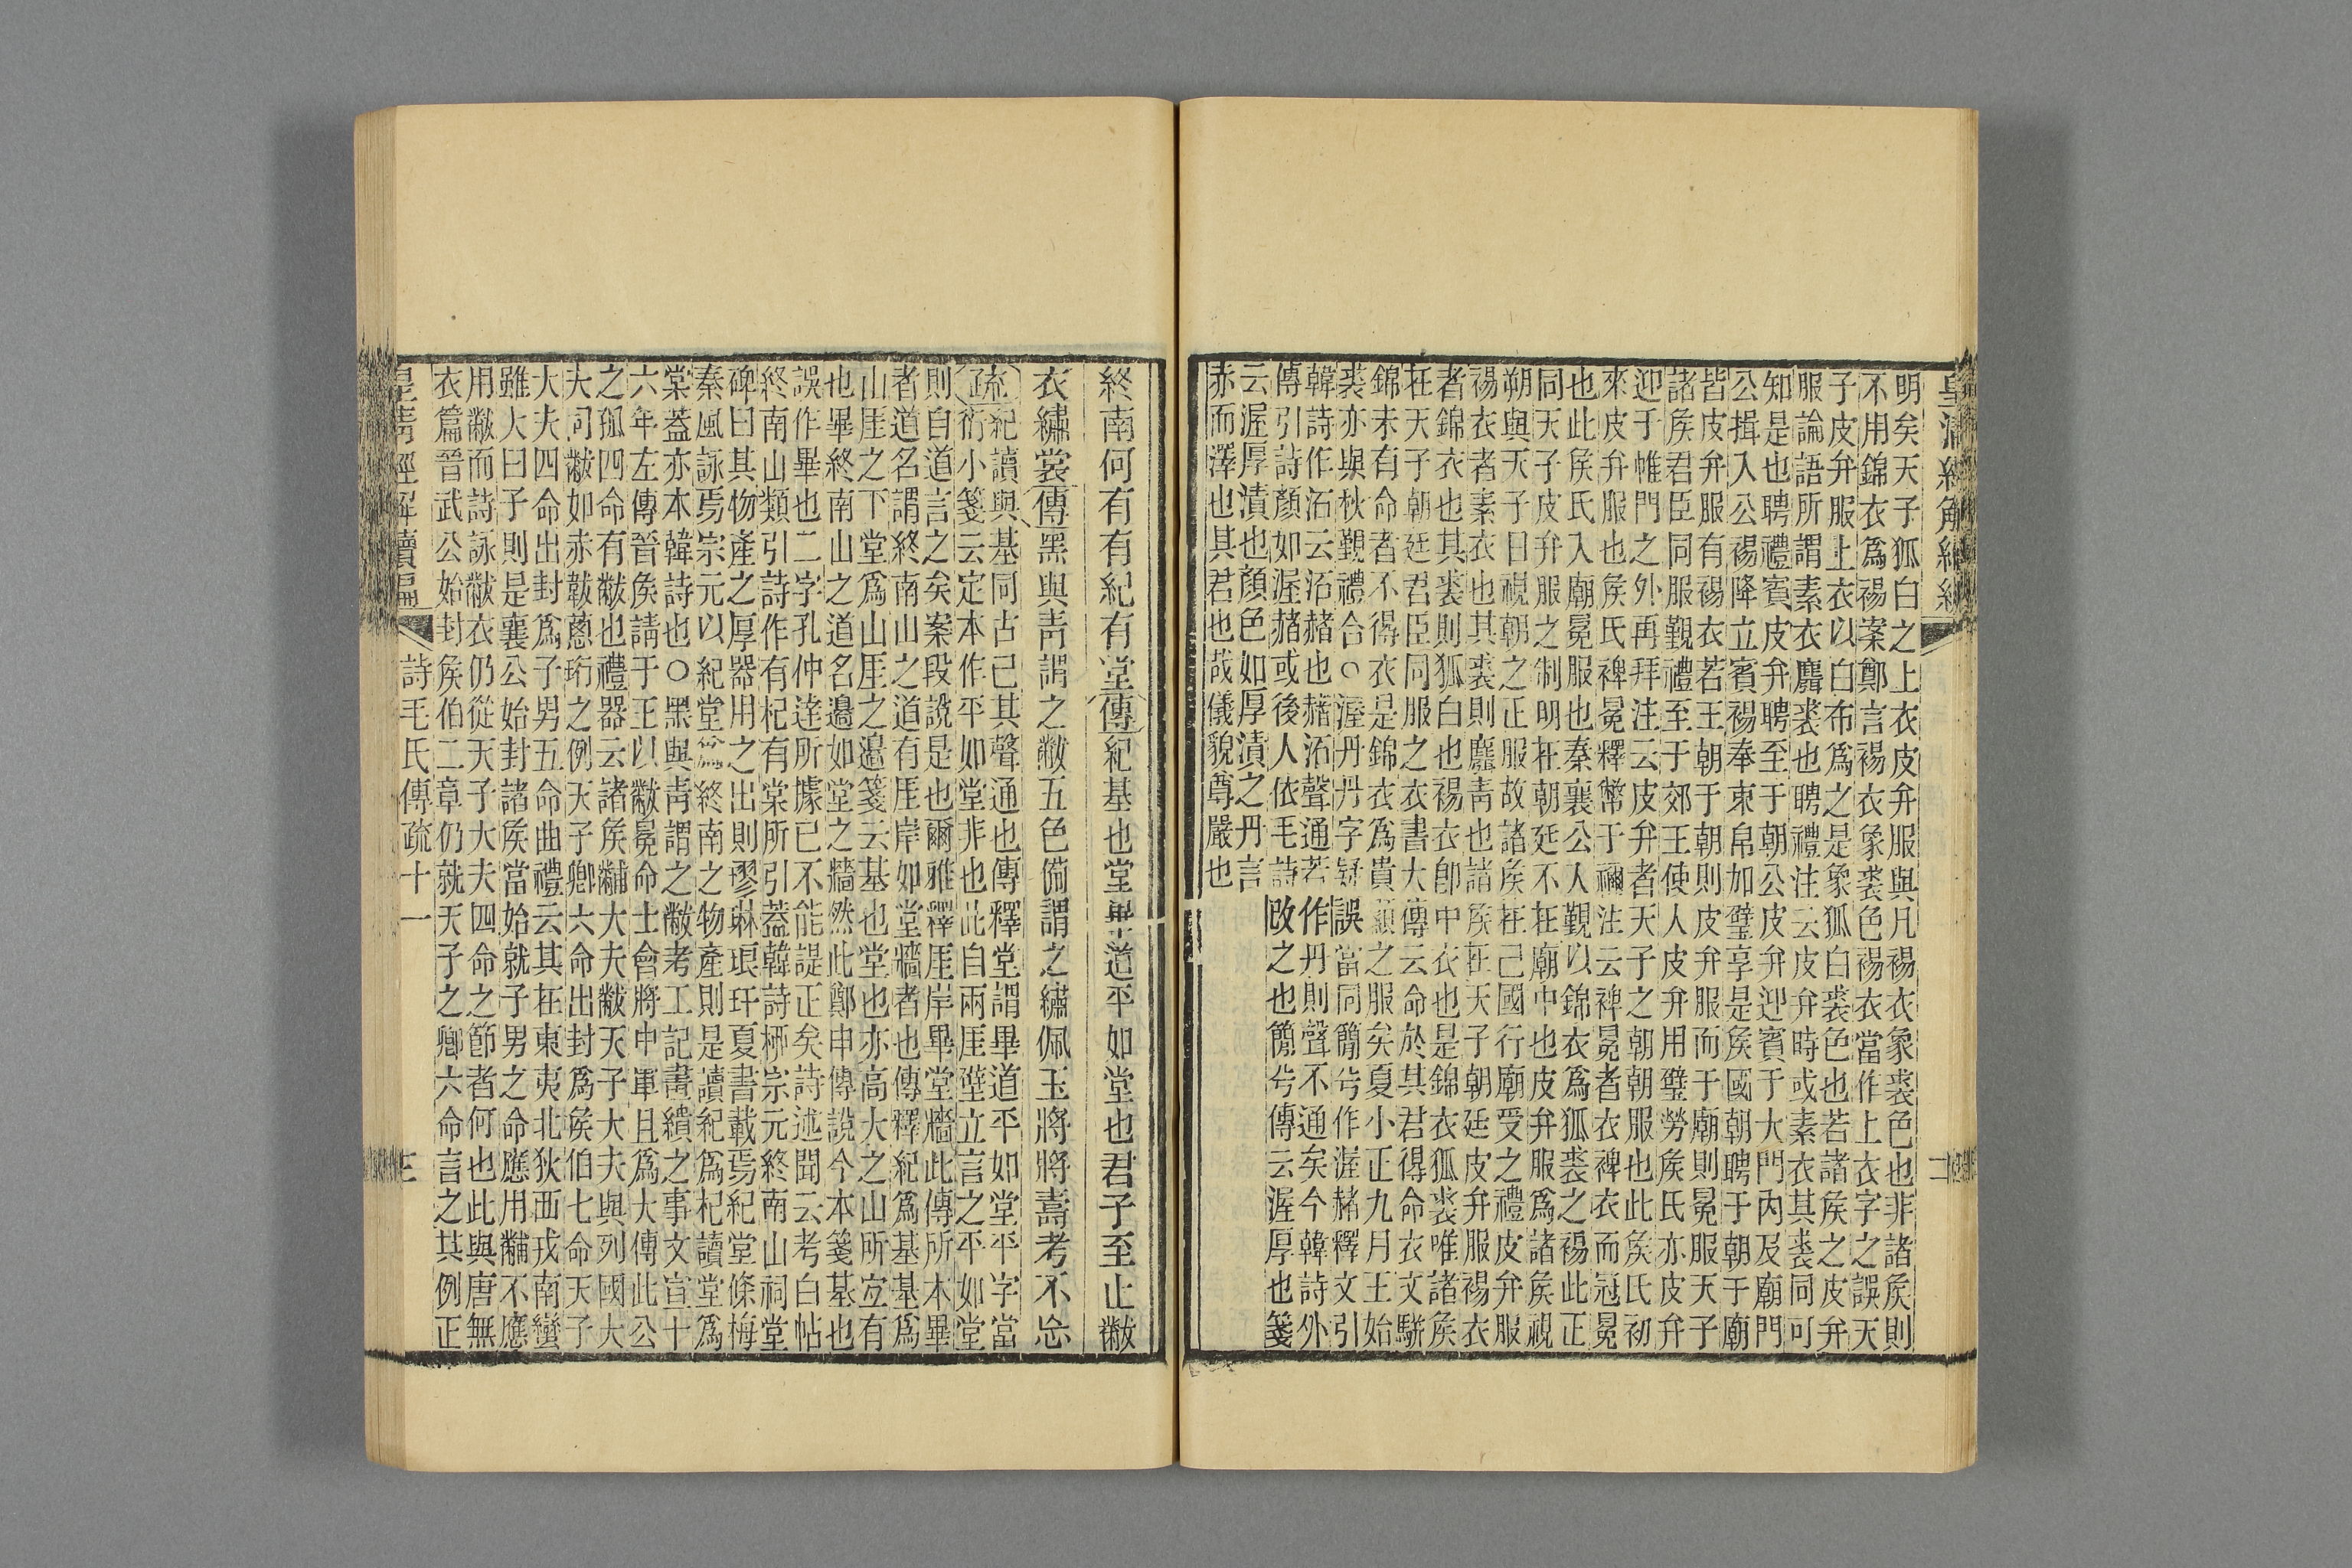 明矣天子狐白之上衣皮弁服與凡裼衣象裘色也非諸矦則
不用錦衣爲裼案鄭言裼衣象裘色裼衣當作上衣字之誤天
子皮弁服上衣以白布爲之是象狐白裘色也若諸矦之皮弁
服論語所謂素衣麛裘也聘禮注云皮弁時或素衣其裘同可
知是也聘禮賓皮弁聘至于朝公皮弁迎賓于大門內及廟門
公揖入公裼降立賓裼奉束帛加璧享是矦國朝聘于朝于廟
皆皮弁服有裼衣若王朝于朝則皮弁服而于廟則冕服天子
諸矦君臣同服覲禮至于郊王使人皮弁用璧勞矦氏亦皮弁
迎于帷門之外再拜注云皮弁者天子之朝朝服也此矦氏初
來皮弁服也矦氏裨冕釋幣于禰注云裨冕者衣裨衣而冠冕
也此矦氏入廟冕服也秦襄公人覲以錦衣爲狐裘之裼此正
同天子皮弁服之制明在朝廷不在廟中也皮弁服爲諸矦視
朔與天子日視朝之正服故諸矦在己國行廟受之禮皮弁服
裼衣者素衣也其裘則麛青也諸矦在天子朝廷皮弁服裼衣
者錦衣也其裘則狐白也裼衣卽中衣也是錦衣狐裘唯諸矦
在天子朝廷君臣同服之衣書大傳云命於其君得命衣文駢
錦未有命者不得衣是錦衣爲貴顯之服矣夏小正九月王始
裘亦與秋覲禮合○渥丹丹字疑誤當同簡兮作渥赭釋文引
韓詩作沰云沰赭也赭沰聲通若作丹則聲不通矣今韓詩外
傳引詩顏如渥赭或後人依毛詩改之也簡兮傳云渥厚也箋
云渥厚漬也顏色如厚漬之丹言
赤而澤也其君也哉儀貌尊嚴也
終南何有有紀有堂傳紀基也堂畢道平如堂也君子至止黻
衣繡裳傳黑與靑謂之黻五色備謂之繡佩玉將將壽考不忘
疏紀讀與基同古己其聲通也傳釋堂謂畢道平如堂平字當
衍小箋云定本作平如堂非也此自兩厓壁立言之平如堂
則自道言之矣案段說是也爾雅釋厓岸畢堂牆此傳所本畢
者道名謂終南山之道有厓岸如堂牆者也傳釋紀爲基基爲
山厓之下堂爲山厓之邉箋云基也堂也亦高大之山所宜有
也畢終南山之道名邉如堂之牆然此鄭申傳說今本箋基也
誤作畢也二字孔仲達所據已不能諟正矣詩述聞云考白帖
終南山類引詩作有杞有棠所引蓋韓詩柳宗元終南山祠堂
碑曰其物產之厚器用之出則璆琳琅玕夏書載焉紀堂條梅
秦風詠焉宗元以紀堂爲終南之物產則是讀紀爲杞讀堂爲
棠蓋亦本韓詩也○黑與靑謂之黻考工記畫繢之事文宣十
六年左傳晉矦請于王以黻冕命士會將中軍且爲大傅此公
之孤四命有黻也禮器云諸矦黼大夫黻天子大夫與列國大
夫同黻如赤韍蔥珩之例天子卿六命出封爲矦伯七命天子
大夫四命出封爲子男五命曲禮云其在東夷北狄西戎南蠻
雖大曰子則是襄公始封諸矦當始就子男之命應用黼不應
用黻而詩詠黻衣仍從天子大夫四命之節者何也此與唐無
衣篇晉武公始封矦伯二章仍就天子之卿六命言之其例正
皇淸經解續編
詩毛氏傳疏十一